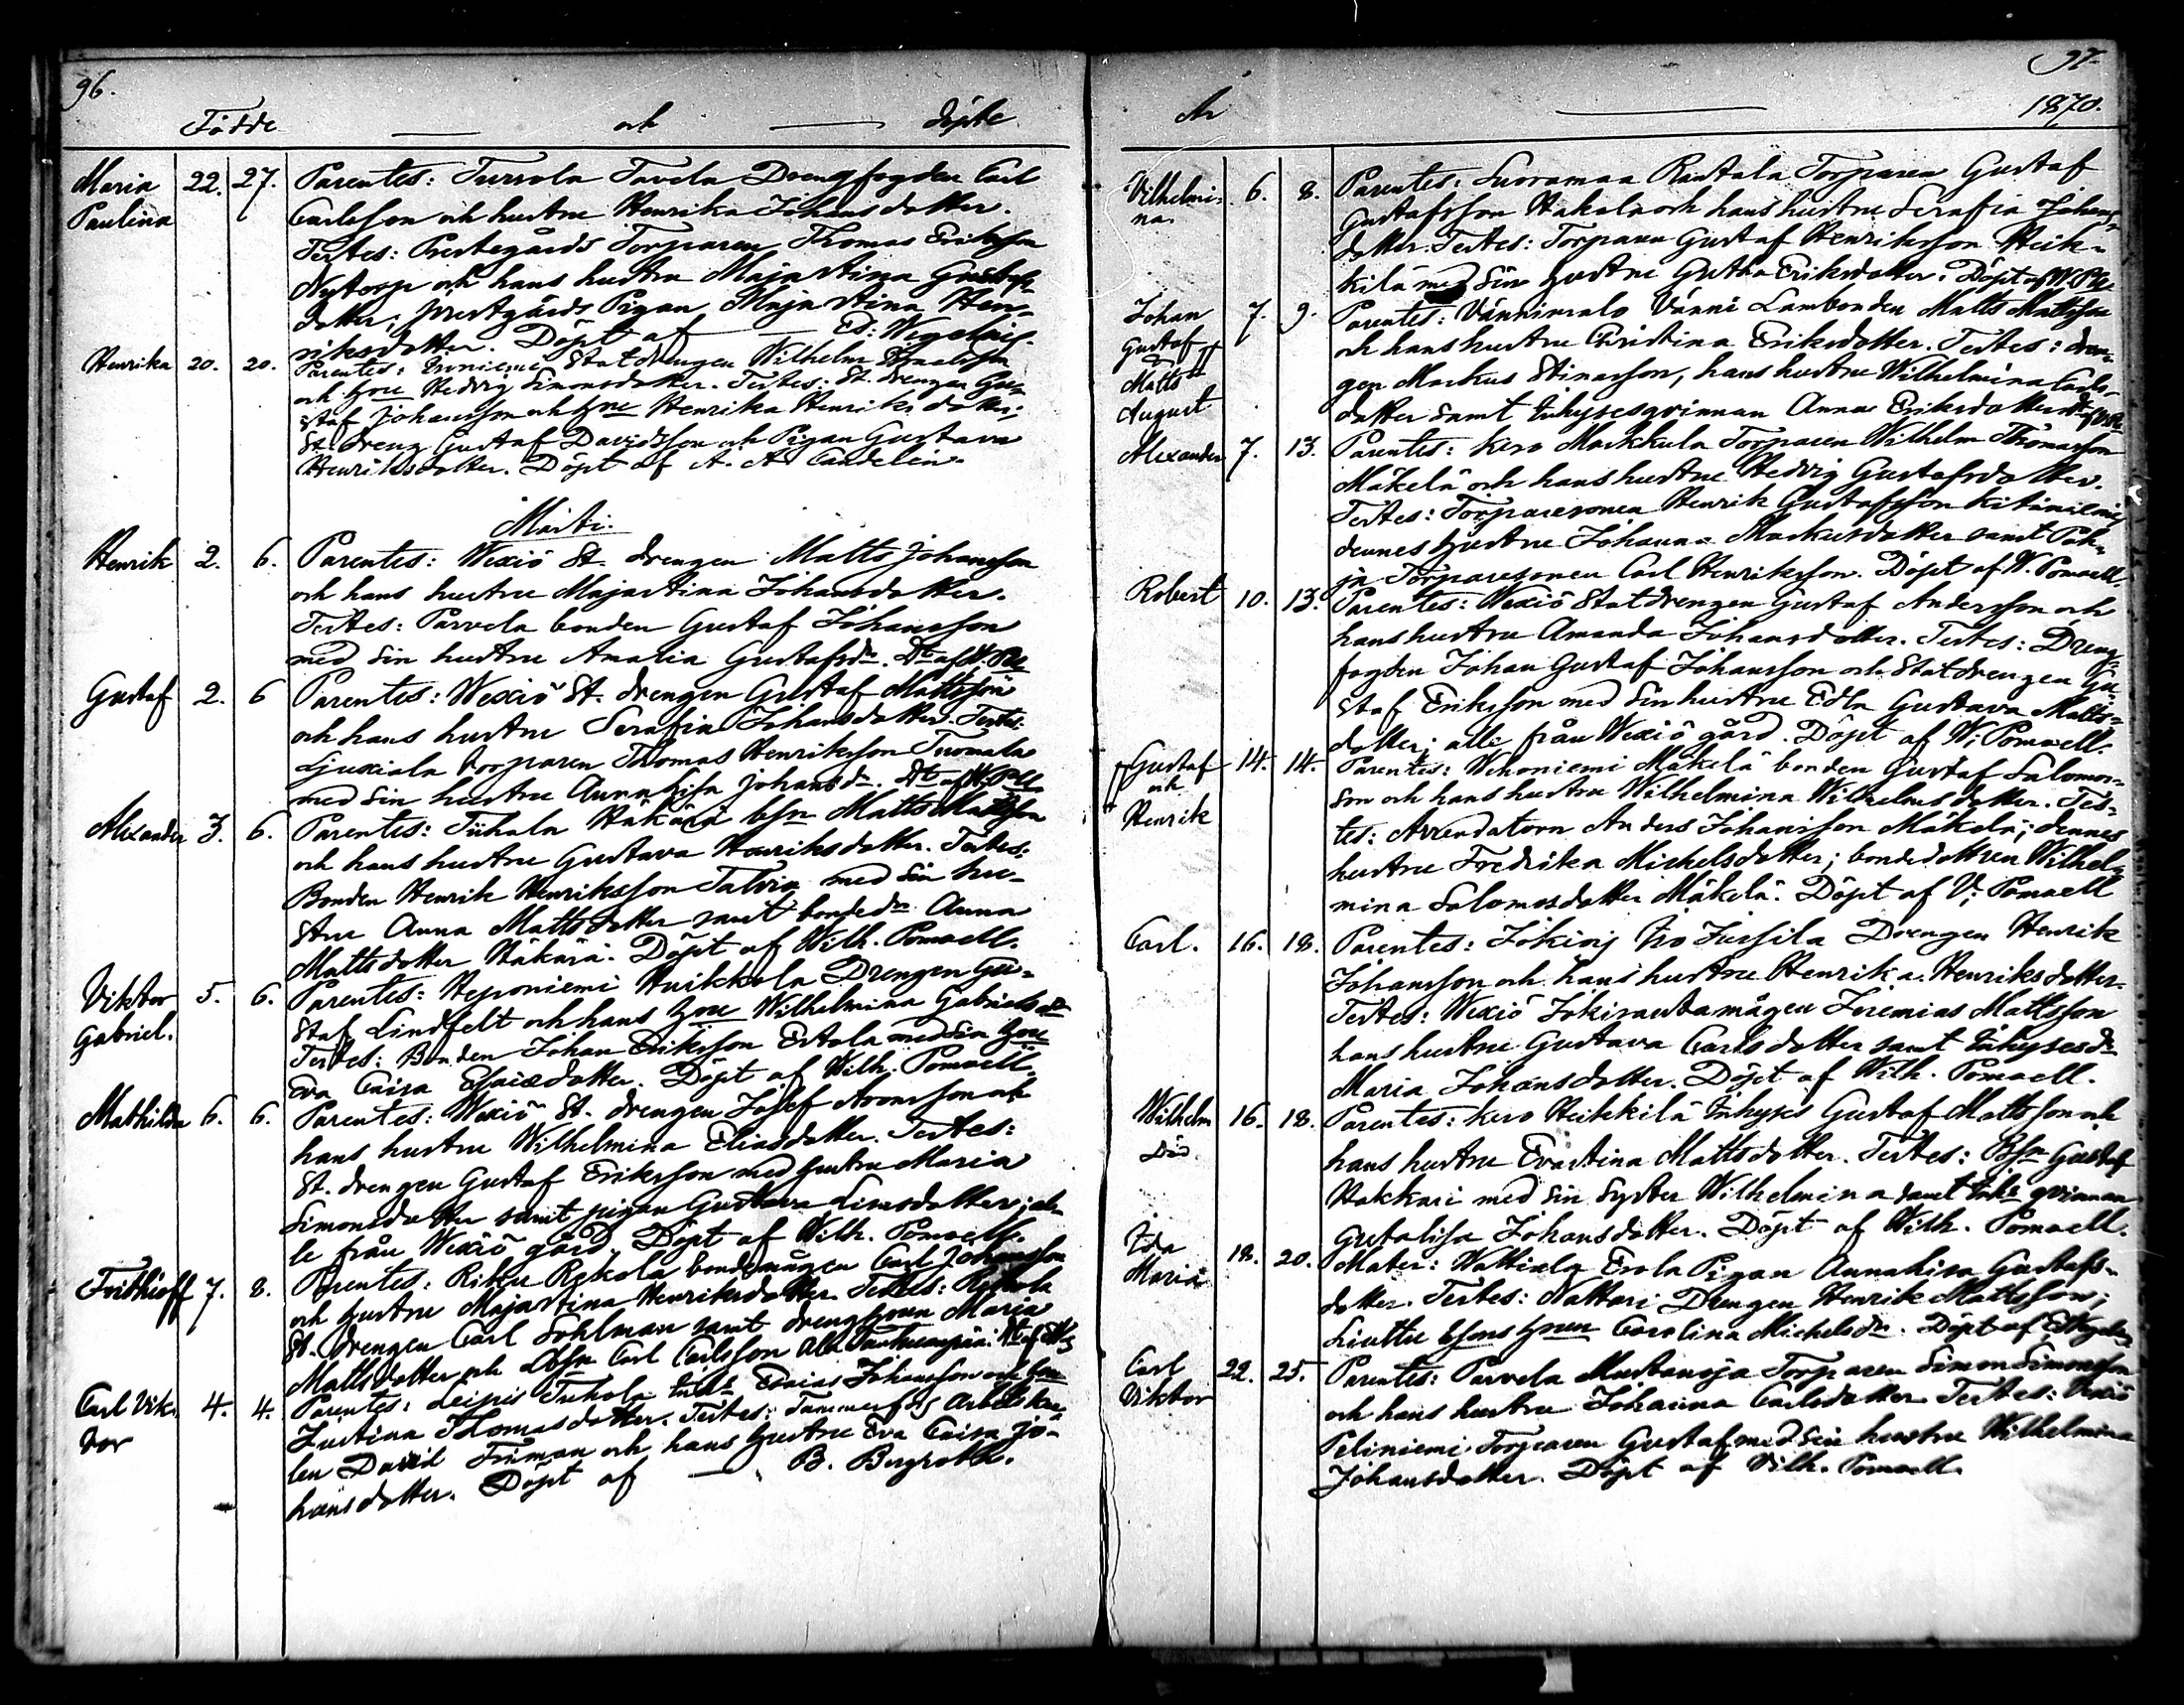 96.
Födde — och — döpte
Maria 22. 27. Parentes: Turrola Tavela Drengfogden Carl
Paulina Carlsson och hustru Henrika Johansdotter.
Testes: Prestegårds Torparen Thomas Eriksson
Nytorp och hans hustru Majastina Gustafs-
dotter; prestgårds Pigan Majastina Hen-
riksdotter. Döpt af — Ed: Wegelius.
Henrika 20. 20. Parentes: Statdrengen Wilhelm
och hru Hedvig Simonsdotter. Testes: St. drengen Gu-
staf Johansson och hru Henrika Henriksdotter;
St. dreng Gustaf Davidsson och Pigan Gustava
Henriksdotter. Döpt af A. A. Candelin.
Marti.
Henrik 2. 6. Parentes: Wexiö St. drengen Matts Johansson
och hans hustru Majastina Johansdotter.
Testes: Parvela bonden Gustaf Johansson
med sin hustru Amalia Gustafsdr. Dt af W. Pll
Gustaf 2. 6 Parentes: Wexiö St. drengen Gustaf Mattsson
och hans hustru Serafia Johansdotter. Testes:
Ljuxiala torparen Thomas Henriksson Tuomala
med sin hustru Annalisa Johansdr. Dt af W. Pll
Alexander 3. 6. Parentes: Tiihala Häkärä bsn Matts Mattsson
och hans hustru Gustava Henriksdotter. Testes:
Bonden Henrik Henriksson Talvia med sin hu-
stru Anna Mattsdotter samt bondedr Anna
Mattsdotter Häkärä. Döpt af Wilh. Pomoell.
Viktor 5. 6. Parentes: Heponiemi Huikkola Drengen Gu-
Gabriel. staf Lindfelt och hans hru Wilhelmina Gabrielsdr
Testes: Bonden Johan Eriksson Ertola med sin hru
Eva Caisa Esaiædotter. Döpt af Wilh. Pomoell.
Mathilda 6. 6. Parentes: Wexiö St. drengen Josef Aronsson och
hans hustru Wilhelmina Eliasdotter. Testes:
St. drengen Gustaf Eriksson med hustru Maria
Simonsdotter samt pigan Gustava Simsdotter; al-
le från Wexiö gård. Döpt af Wilh. Pomoell.
Frithioff 7. 8. Parentes: Riku Rekola bondemågen Carl Johansson
och hustru Majastina Henriksdotter. Testes: Rekola
St. drengen Carl Sohlman samt drenghrun Maria
Mattsdotter och Carl Carlsson
Carl Vik- 4. 4. Parentes: Leipis Tuhola Inhs Esaias Johansson och hru
tor Justina Thomasdotter. Testes: Tammerfors Arbetska-
len David Friman och hans hustru Eva Caisa Jo-
hansdotter. Döpt af — B. Bergroth.
97.
År — 1870.
Vilhelmi- 6. 8. Parentes: Suoramaa Rantala Torparen Gustaf
na. Gustafsson Hakala och hans hustru Serafia Johans-
dotter. Testes: Torparen Gustaf Henriksson Heik-
kilä med sin hustru Gustava Eriksdotter. Döpt af W. Pll
Johan 7. 9. Parentes: Vännimalo Vänni Lambonden Matts Mattsson
Gustaf och hans hustru Christina Eriksdotter. Testes: dren-
och
Matts gen Markus Stinasson, hans hustru Wilhelmina Carls-
August dotter samt Inhysesqvinnan Anna Eriksdotter. Dt af W. Pll
Alexander 7. 13. Parentes: Kero Markkula Torparen Wilhelm Thomasson
Mäkelä och hans hustru Hedvig Gustafsdotter.
Testes: Torparesonen Henrik Gustafsson Kitiniemi
dennes hustru Johanna Markusdotter samt Pok-
ja Torparesonen Carl Henriksson. Döpt af W. Pomoell.
Robert 10. 13. Parentes: Wexiö Statdrengen Gustaf Andersson och
hans hustru Amanda Johansdotter. Testes: Dreng-
fogden Johan Gustaf Johansson och Statdrengen Gu-
staf Eriksson med sin hustru Edla Gustava Matts-
dotter; alla från Wexiö gård. Döpt af W. Pomoell.
Gustaf 14. 14. Parentes: Vehoniemi Mäkelä bonden Gustaf Salomons-
och son och hans hustru Wilhelmina Wilhelmsdotter. Tes-
Henrik tes: Arrendatorn Anders Johansson Mäkelä; dennes
hustru Fredrika Michelsdotter; bondedottren Wilhel-
mina Salomosdotter Mäkelä. Döpt af V. Pomoell
Carl. 16. 18. Parentes: Jokioij Iso Jussila Drengen Henrik
Johansson och hans hustru Henrika Henriksdotter.
Testes: Wexiö Jokirantamågen Jeremias Mattsson
hans hustru Gustava Carlsdotter samt Inhysesdr
Maria Johansdotter. Döpt af Wilh. Pomoell.
Wilhelm 16. 18. Parentes: Kero Heikkilä Inhyses Gustaf Mattsson och
Död hans hustru Evastina Mattsdotter. Testes: Bsn Gustaf
Hakkari med sin syster Wilhelmina samt Inhs qvinnan
Gustalisa Johansdotter. Döpt af Wilh. Pomoell.
Ida 18. 20. Mater: Wattiala Erola Pigan Annalisa Gustafs-
Maria dotter. Testes: Nattari Drengen Henrik Mattsson;
Liuttu bsons hrun Carolina Michelsdr. Döpt af E. Wegelius
Carl 22. 25. Parentes: Parvela Mustanoja Torparen Simon Simonsson
Viktor och hans hustru Johanna Carlsdotter. Testes: Wexiö
Peliniemi Torparen Gustaf med sin hustru Wilhelmina
Johansdotter. Döpt af Wilh. Pomoell.